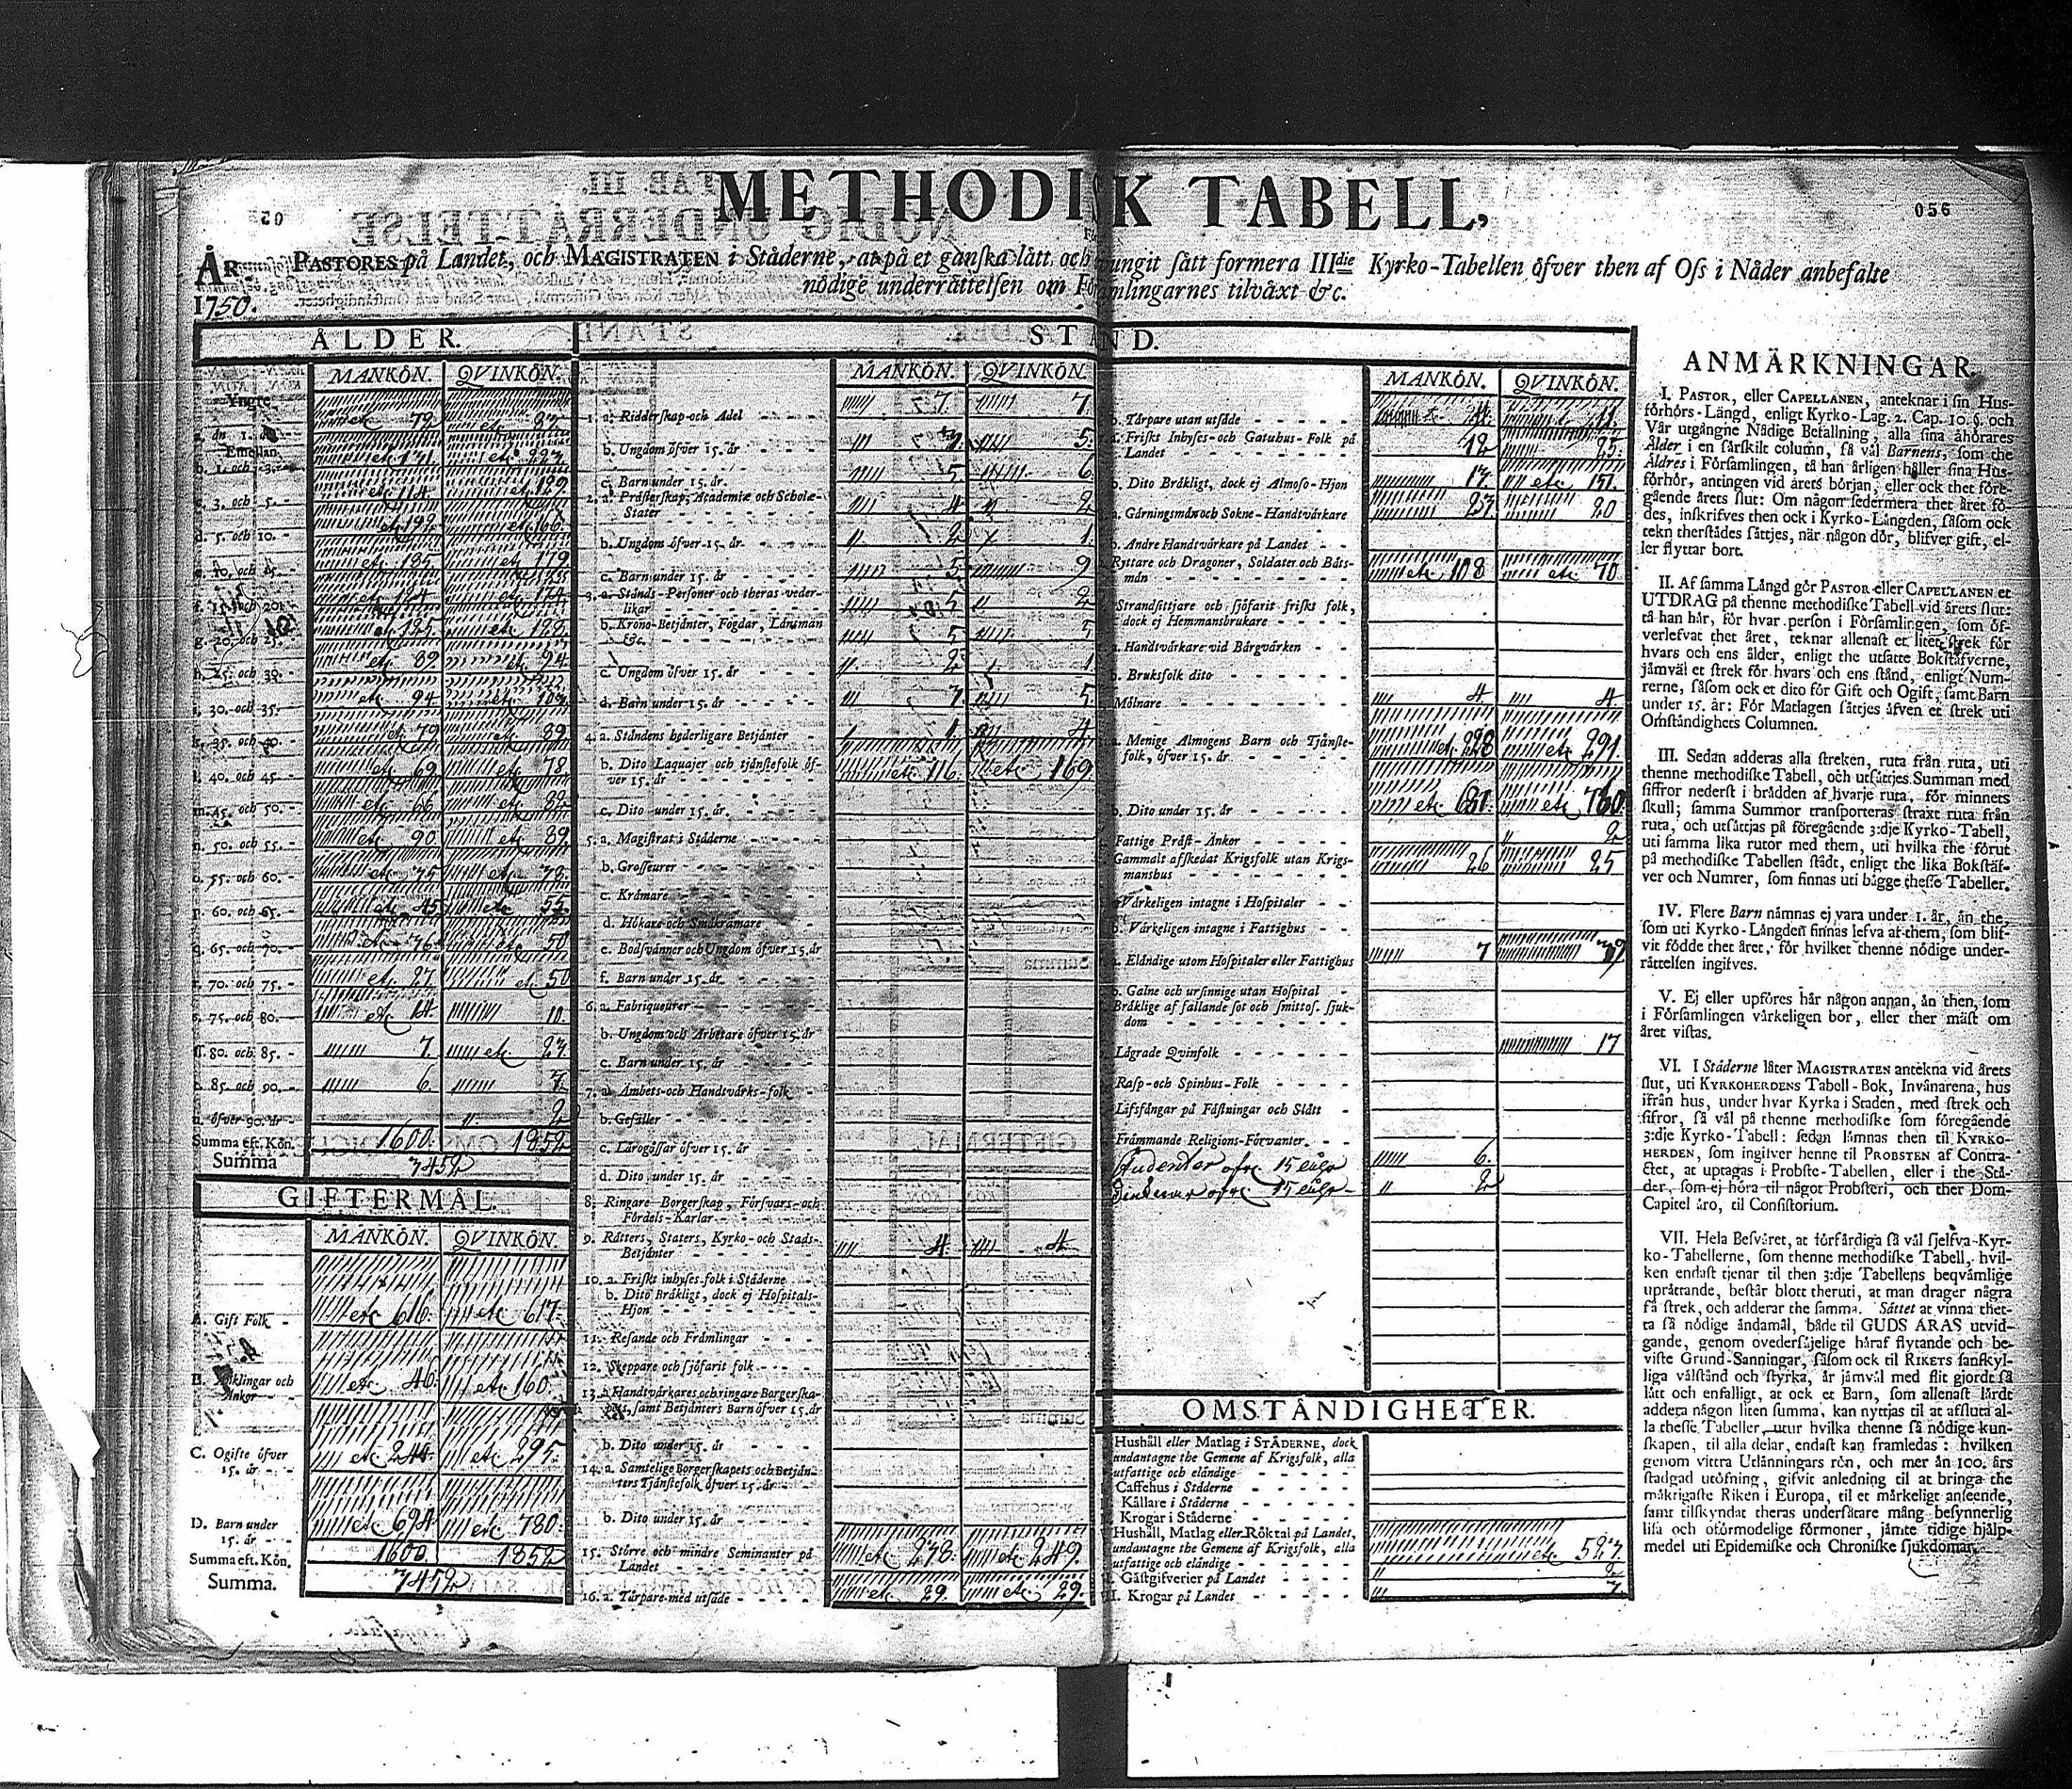 METHODISK TABELL,
056
ÅR
PASTORES på Landet, och MAGISTRATEN i Ståderne, at på et ganska lått och tvungit sått formera IIIdie Kyrko-Tabellen öfver then af Oss i Nåder anbefalte
1750.
nödige underråttelsen om Församlingarnes tilvåxt &c.
ÅLDER.
MANKÖN. QVINKÖN.
Yngre
än 1. år
Emellan
b. 1. och 3.
c. 3. och 5. etc 114 etc 129
d. 5. och 10. etc 192 etc 166
e. 10. och 15. etc 185 etc 179
f. 15. och 20.
g. 20. och 25. etc 125 etc 125
h. 25. och 30. etc 89 etc 94
i. 30. och 35. etc 94
k. 35. och 40. etc 79 etc 89
l. 40. och 45. etc 69 etc 78
m. 45. och 50. etc 66
n. 50. och 55. etc 90 etc 89
o. 55. och 60. etc 75
p. 60. och 65. etc 45 etc 55
q. 65. och 70. etc 50
r. 70. och 75. etc 27 etc 50
s. 75. och 80. etc 14 10
ſſ. 80. och 85. 7. etc 27
t. 85. och 90. 6. 7
u. öfver 90. år 2
Summa eft. Kön. 1600. 1852
Summa 3452
GIFTERMÅL.
MANKÖN. QVINKÖN.
A. Gift Folk etc 616. etc 617.
B. Enklingar och
Ånkor etc 46. etc 160.
C. Ogifte öfver
15. år etc 244. etc 295.
D. Barn under
15. år etc 694. etc 780.
Summa eft. Kön. 1600. 1852
Summa. 3452
STÅND.
MANKÖN. QVINKÖN.
1. a. Ridderskap och Adel 7. 7
b. Ungdom öfver 15. år 5.
c. Barn under 15. år. 5 6
2. a. Pråsterskap, Academiæ och Scholæ-
Stater 4 2
b. Ungdom öfver 15. år 2 1
c. Barn under 15. år 5 9
3. a. Stånds-Personer och theras veder-
likar 5 2
b. Krono-Betjånter, Fogdar, Lånsmån
&c. 5 5
c. Ungdom öfver 15. år 2 1
d. Barn under 15. år 7. 5
4. a. Ståndens hederligare Betjånter 1 4
b. Dito Laquajer och tjånstefolk öf-
ver 15. år etc 116. etc 169
c. Dito under 15. år.
5. a. Magistrat i Ståderne
b. Grosseurer
c. Kråmare
d. Hökare och Småkråmare
e. Bodsvånner och Ungdom öfver 15. år
f. Barn under 15. år
6. a. Fabriqueurer
b. Ungdom och Arbetare öfver 15. år
c. Barn under 15. år
7. a. Åmbets- och Handtvårks-folk
b. Gesåller
c. Lårogåssar öfver 15. år
d. Dito under 15. år
8. Ringare Borgerskap, Försvars- och
Fördels-Karlar
9. Råtters, Staters, Kyrko- och Stads-
Betjånter 4. 4
10. a. Friskt inhyses folk i Ståderne
b. Dito Bråkligt, dock ej Hospitals-
Hjon
11. Resande och Fråmlingar
12. Skeppare och sjöfarit folk
13. a. Handtvårkares och ringare Borgerska-
pets, samt Betjånters Barn öfver 15. år
b. Dito under 15. år
14. a. Samtelige Borgerskapets och Betjån-
ters Tjånstefolk öfver 15. år
b. Dito under 15. år
15. Större och mindre Heminanter på
Landet etc 278. etc 249.
16. a. Tårpare med utsåde etc 29. etc 29.
MANKÖN. QVINKÖN.
b. Tårpare utan utsåde 11
a. Friskt Inhyses- och Gatuhus-Folk på
Landet 12 25
b. Dito Bråkligt, dock ej Almoso-Hjon 17. etc 151.
a. Gårningsmån och Sokne-Handtvårkare 23 20
b. Andre Handtvårkare på Landet
Ryttare och Dragoner, Soldater och Båts-
mån etc 108 etc 70
Strandsittjare och sjöfarit friskt folk,
dock ej Hemmansbrukare
a. Handtvårkare vid Bårgvårken
b. Bruksfolk dito
Mölnare 4. 4.
a. Menige Almogens Barn och Tjånste-
folk, öfver 15. år etc 228 etc 291.
b. Dito under 15. år etc 760.
Fattige Pråst-Ånkor 2
Gammalt afskedat Krigsfolk utan Krigs-
manshus 26 25
Vårkeligen intagne i Hospitaler
b. Vårkeligen intagne i Fattighus
a. Elåndige utom Hospitaler eller Fattighus 7
b. Galne och ursinnige utan Hospital
Bråklige af fallande sot och smittos. sjuk-
dom
Lågrade Qvinfolk 17
Rasp- och Spinhus-Folk
Lifsfångar på Fåstningar och Slått
Fråmmande Religions-Förvanter.
Studenter öfver 15 åhr 6.
15 åhr 2
OMSTÅNDIGHETER.
Hushåll eller Matlag i STÅDERNE, dock
undantagne the Gemene af Krigsfolk, alla
utfattige och elåndige
Caffehus i Ståderne
Kållare i Ståderne
Krogar i Ståderne
Hushåll, Matlag eller Röktal på Landet,
undantagne the Gemene af Krigsfolk, alla
utfattige och elåndige etc 527.
Gåstgifverier på Landet 2
Krogar på Landet
ANMÄRKNINGAR.
I. PASTOR, eller CAPELLANEN, anteknar i sin Hus-
förhörs-Långd, enligt Kyrko-Lag. 2. Cap. 10. §. och
Vår utgångne Nådige Befallning, alla sina åhörares
Ålder i en sårskilt column, så vål Barnens, som the
Åldres i Församlingen, tå han årligen håller sina Hus-
förhör, antingen vid årets början, eller ock thet före-
gående årets slut: Om någon sedermera thet året fö-
des, inskrifves then ock i Kyrko-Långden, såsom ock
tekn therstådes såttjes, når någon dör, blifver gift, el-
ler flyttar bort.
II. Af samma Långd gör PASTOR eller CAPELLANEN et
UTDRAG på thenne methodiske Tabell vid årets slut:
tå han hår, för hvar person i Församlingen, som öf-
verlefvat thet året, teknar allenast et litet strek för
hvars och ens ålder, enligt the utsatte Bokståfverne,
jåmvål et strek för hvars och ens stånd, enligt Num-
rerne, såsom ock et dito för Gift och Ogift, samt Barn
under 15. år: För Matlagen såttjes åfven et strek uti
Omståndighets Columnen.
III. Sedan adderas alla streken, ruta från ruta, uti
thenne methodiske Tabell, och utsåttjes Summan med
siffror nederst i brådden af hvarje ruta, för minnets
skull; samma Summor transporteras straxt ruta från
ruta, och utsåttjas på föregående 3:dje Kyrko-Tabell,
uti samma lika rutor med them, uti hvilka the förut
på methodiske Tabellen stådt, enligt the lika Bokståf-
ver och Numrer, som finnas uti bågge thesse Tabeller.
IV. Flere Barn nåmnas ej vara under 1. år, ån the,
som uti Kyrko-Långden finnas lefva af them, som blif-
vit födde thet året, för hvilket thenne nödige under-
råttelsen ingifves.
V. Ej eller upföres hår någon annan, ån then, som
i Församlingen vårkeligen bor, eller ther måst om
året vistas.
VI. I Ståderne låter MAGISTRATEN antekna vid årets
slut, uti KYRKOHERDENS Tabell-Bok, Invånarena, hus
ifrån hus, under hvar Kyrka i Staden, med strek och
sifror, så vål på thenne methodiske som föregående
3:dje Kyrko-Tabell: sedan låmnas then til KYRKO-
HERDEN, som ingifver henne til PROBSTEN af Contra-
ctet, at uptagas i Probste-Tabellen, eller i the Stå-
der, som ej höra til något Probsteri, och ther Dom-
Capitel åro, til Consistorium.
VII. Hela Besvåret, at förfårdiga så vål sjelfva Kyr-
ko-Tabellerne, som thenne methodiske Tabell, hvil-
ken endast tjenar til then 3:dje Tabellens beqvåmlige
upråttande, består blott theruti, at man drager några
få strek, och adderar the samma. Såttet at vinna thet-
ta så nödige åndamål, både til GUDS ÅRAS utvid-
gande, genom ovedersåjelige håraf flytande och be-
viste Grund-Sanningar, såsom ock til RIKETS sanskyl-
liga vålstånd och styrka, år jåmvål med flit gjordt så
lått och enfalligt, at ock et Barn, som allenast lårdt
addera någon liten summa, kan nyttjas til at afsluta al-
la thesse Tabeller, utur hvilka thenne så nödige kun-
skapen, til alla delar, endast kan framledas: hvilken
genom vittra Utlånningars rön, och mer ån 100. års
stadgad utöfning, gifvit anledning til at bringa the
måktigaste Riken i Europa, til et mårkeligt anseende,
samt tilskyndat theras undersåtare mång besynnerlig
lisa och oförmodelige förmoner, jåmte tidige hjålp-
medel uti Epidemiske och Chroniske sjukdomar.